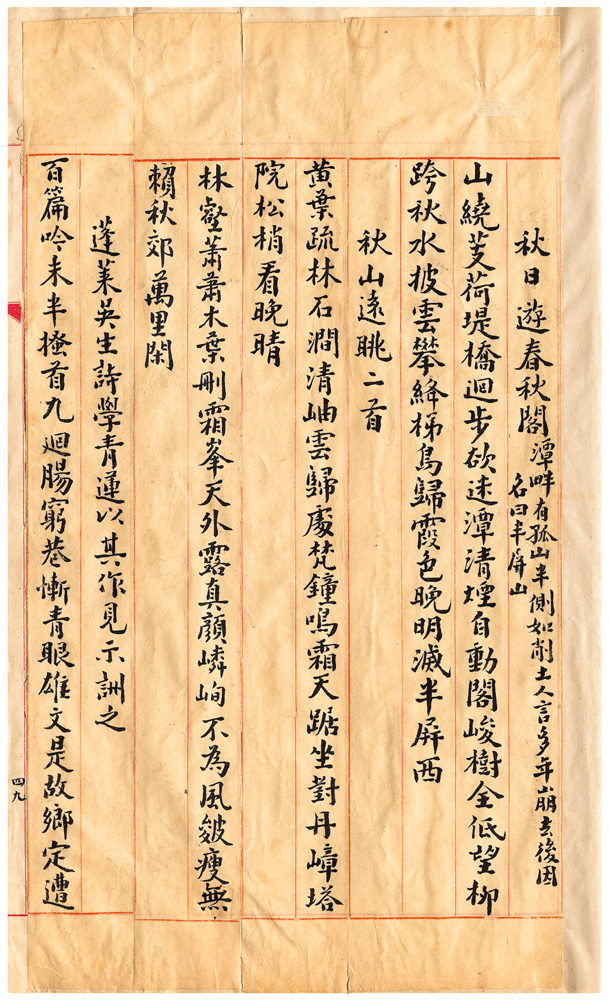 秋日遊春秋閣潭畔有孤山半側如削土人言多年崩去後因
名曰半屏山
山繞芰荷堤橋迴步欲迷潭清煙自動閣峻樹全低望柳
跨秋水披雲攀絳梯鳥歸霞色晚明滅半屏西
秋山遠眺二首
黃葉疏林石澗清岫雲歸處梵鐘鳴霜天踞坐對丹嶂塔
院松梢看晚晴
林壑蕭蕭木葉刪霜峯天外露真顏嶙峋不為風皴瘦無
賴秋郊萬里閑
蓬萊吳生詩學青蓮以其作見示詶之
百篇吟未半搔首九迴腸窮巷慚青眼雄文是故鄉定遭
四九